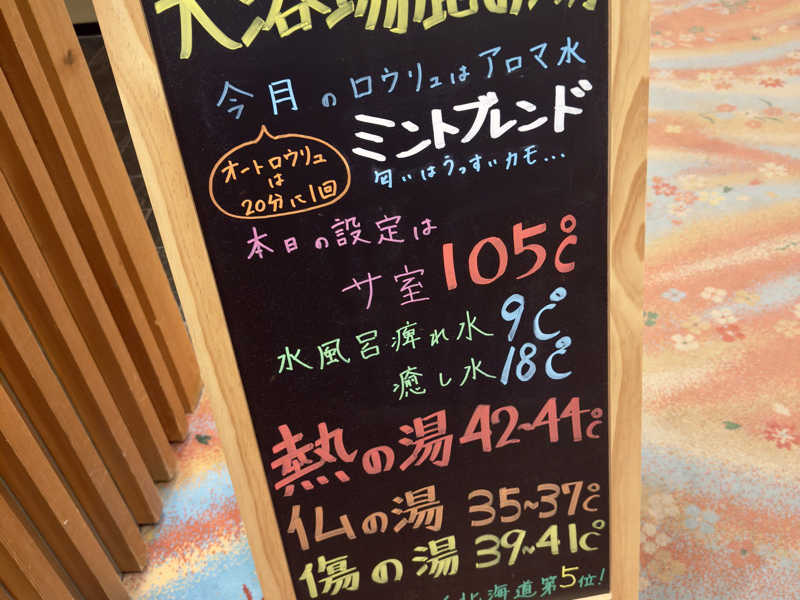 大浴場
今月のロウリュはアロマ水
ミントブレンド
匂いはうっすいカモ...
オートロウリュ
は
20分に1回
本日の設定は
サ室 105℃
水風呂痺れ水 9℃
癒し水 18℃
熱の湯 42~44℃
仏の湯 35~37℃
傷の湯 39~41℃
北海道第5位!